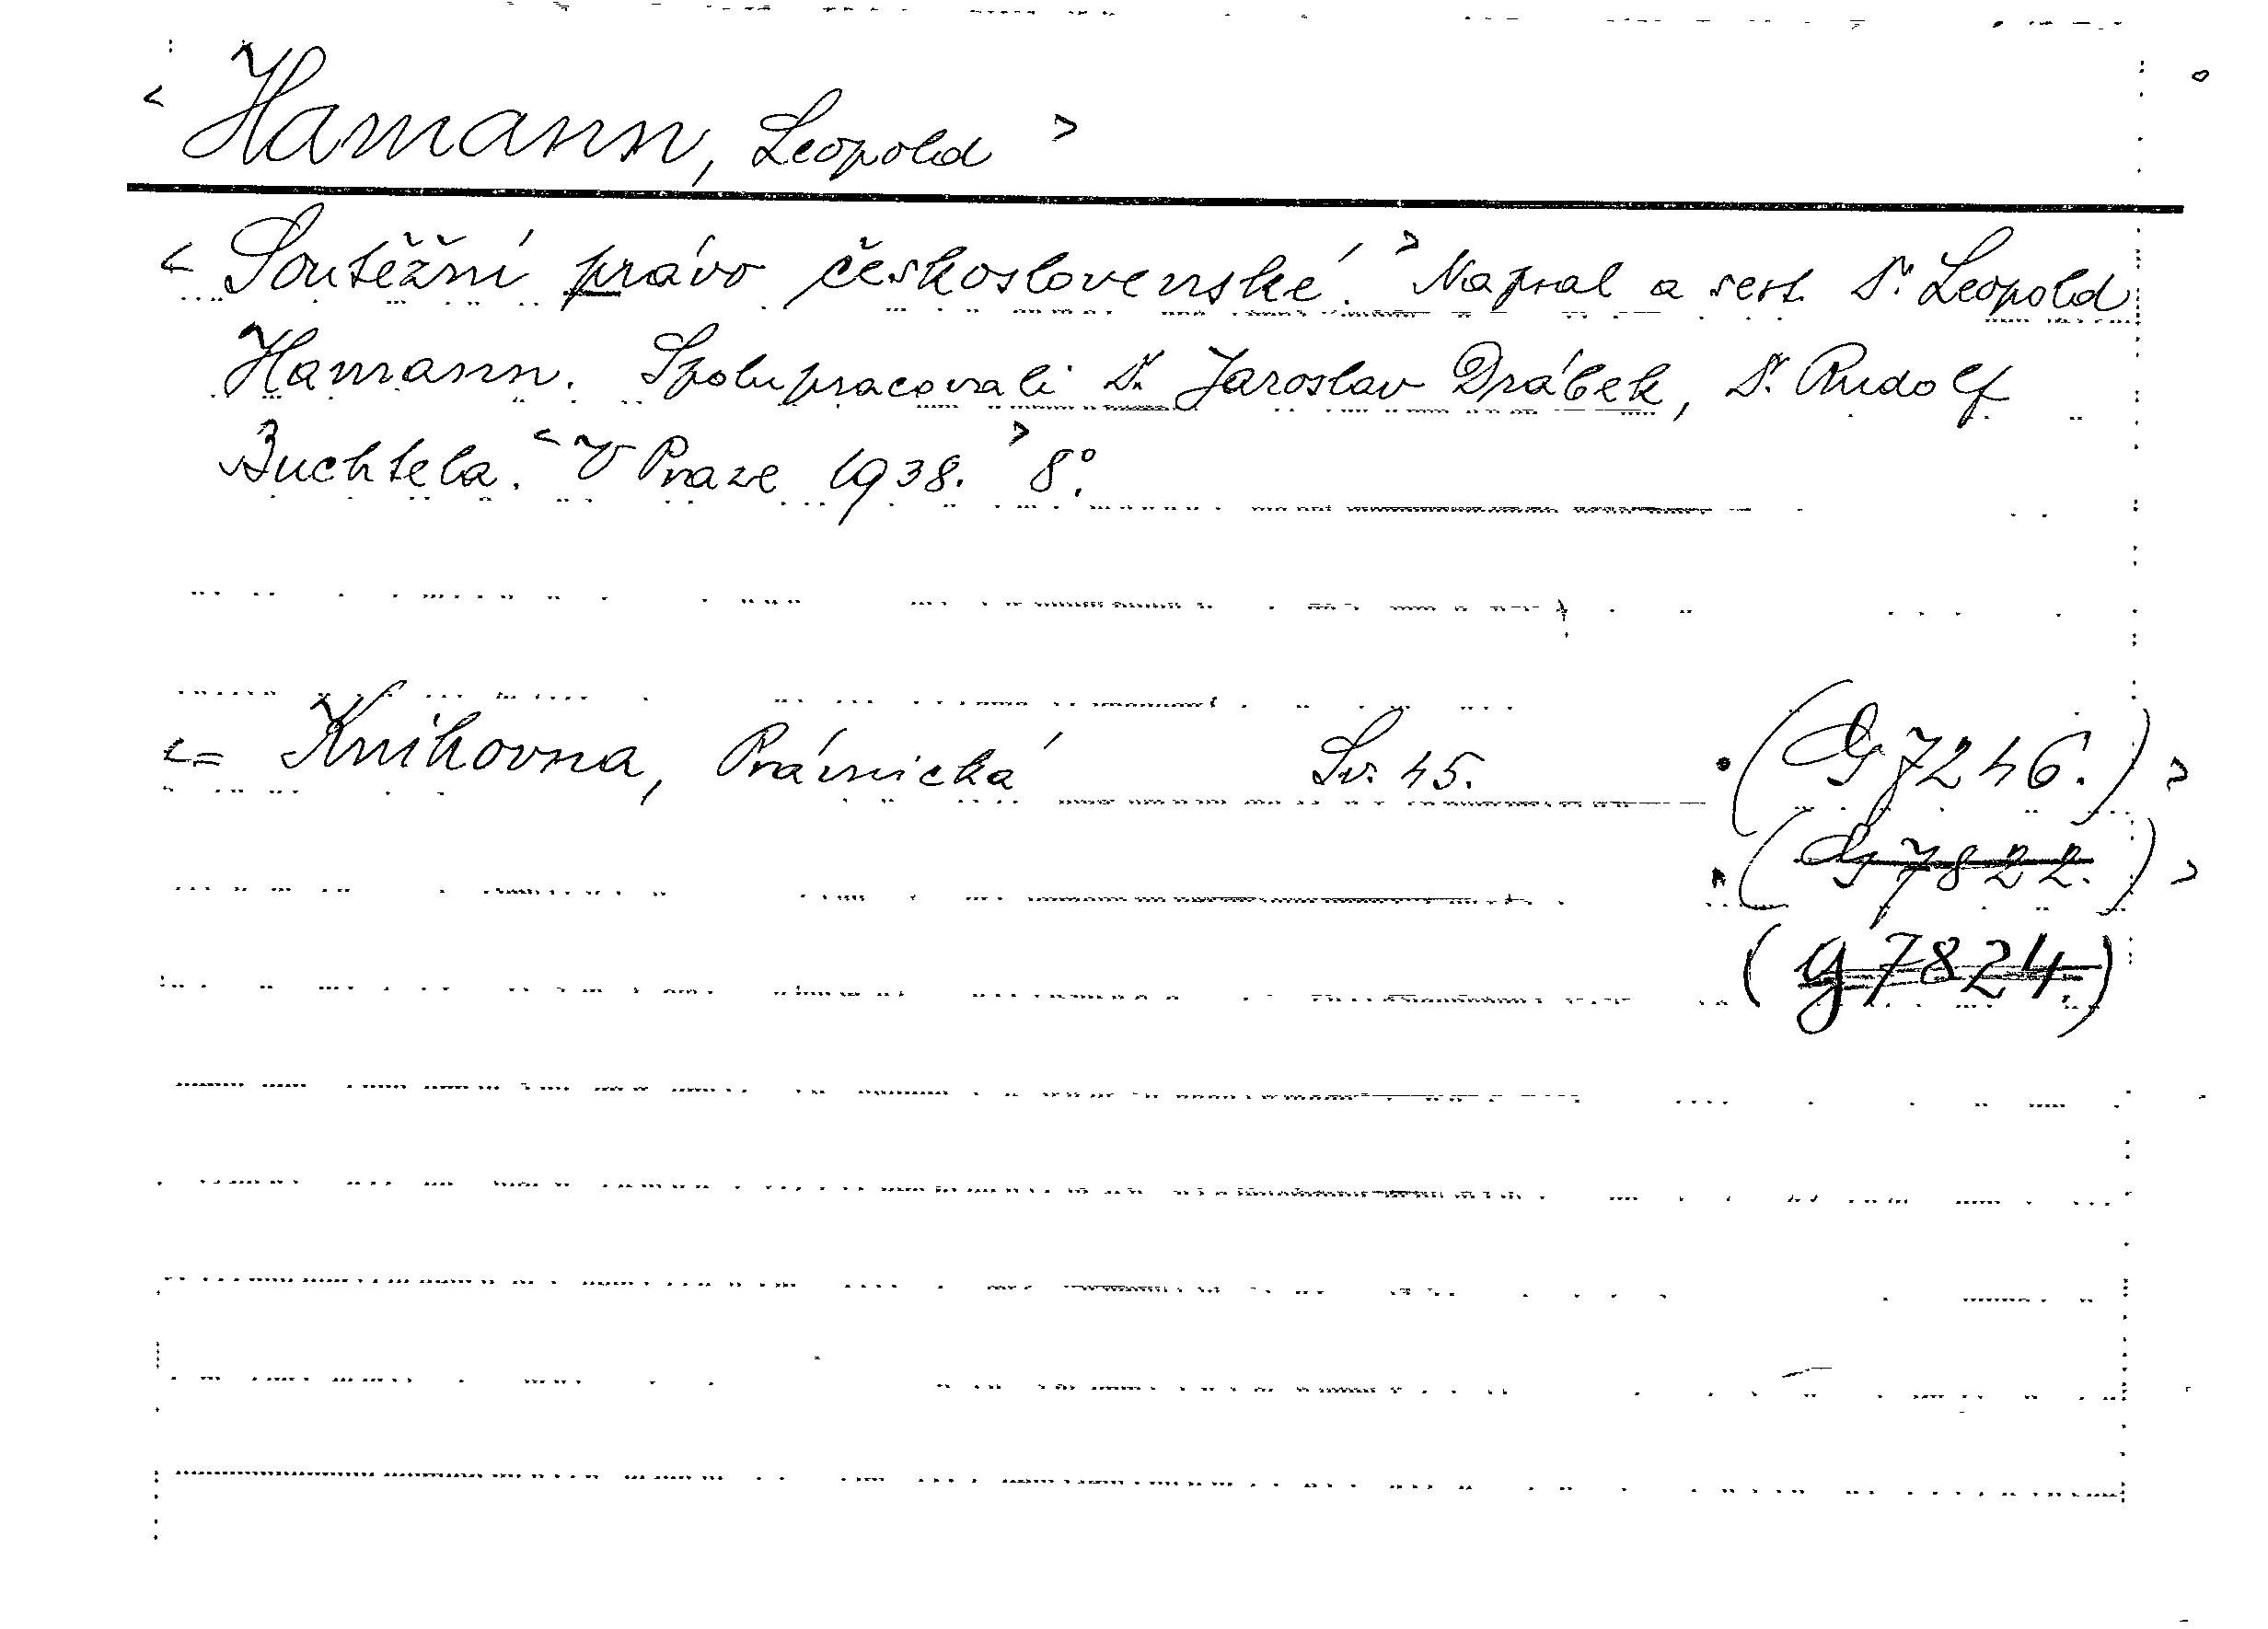 < Hamann, Leopold >
< Soutěžní právo československé. > Napsal a sest. Dr. Leopold
Hamann. Spolupracovali Dr. Jaroslav Drábek, Dr. Rudolf
Buchtela. < V Praze 1938. > 8°.
<= Knihovna, Právnická Sv. 45. (G 7246.) >
(G 7822.) >
(G 7824.)